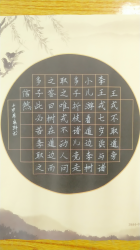 王戎不取道旁
李王戎七岁尝与诸
小儿游看道边李树
多子折枝诸儿竞走
取之唯戎不动人问
之答曰树在道边而
多子此必苦李取之
信然